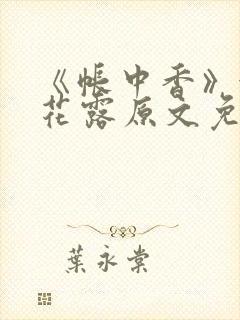 《帐中香》
花露原文免
葉永棠